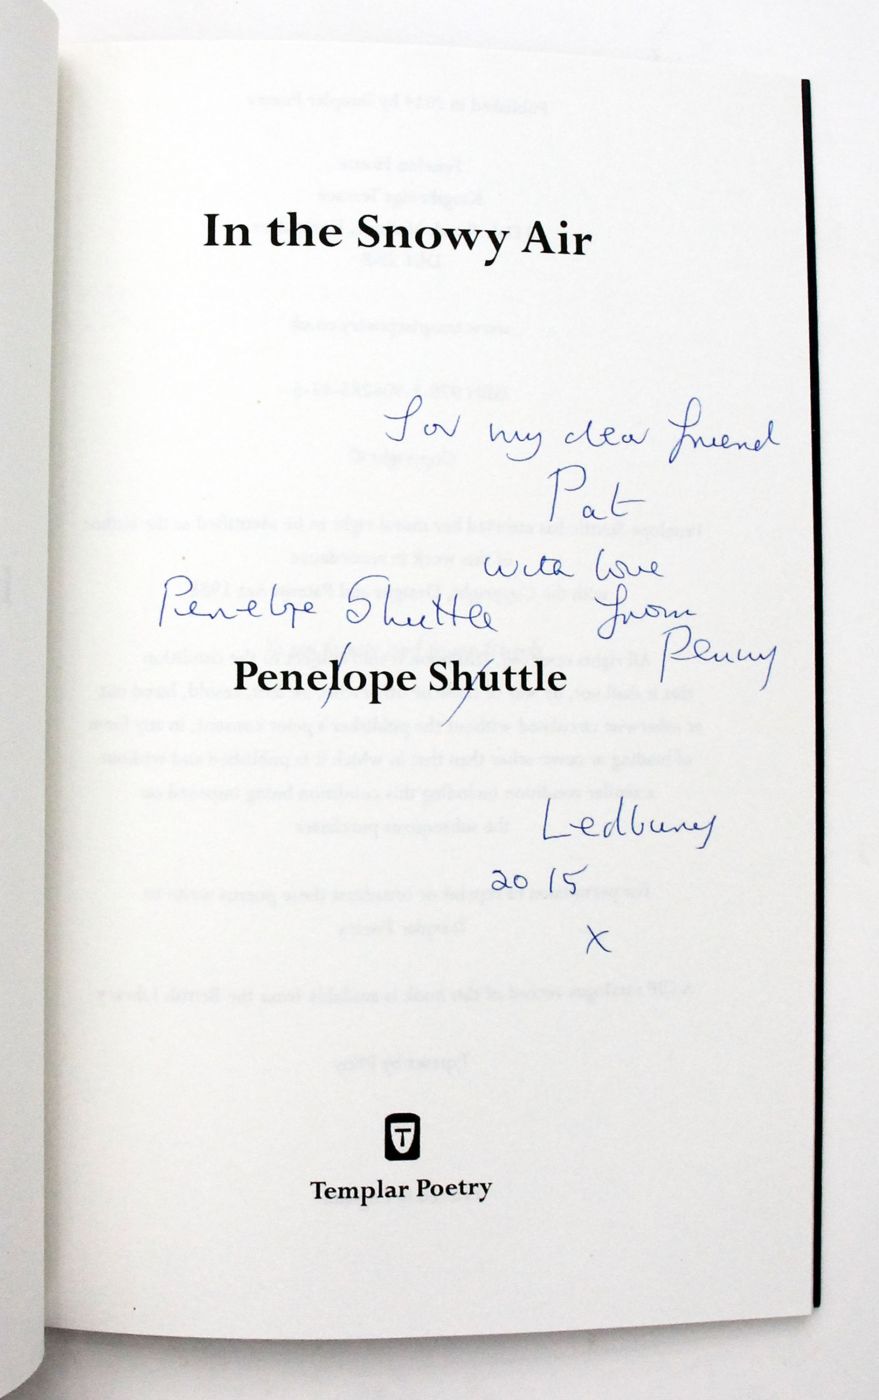 In the Snowy Air
For my dear friend
Pat
with love
Penelope Shuttle from
Penny
Penelope Shuttle
Ledbury
2015
x
T
Templar Poetry